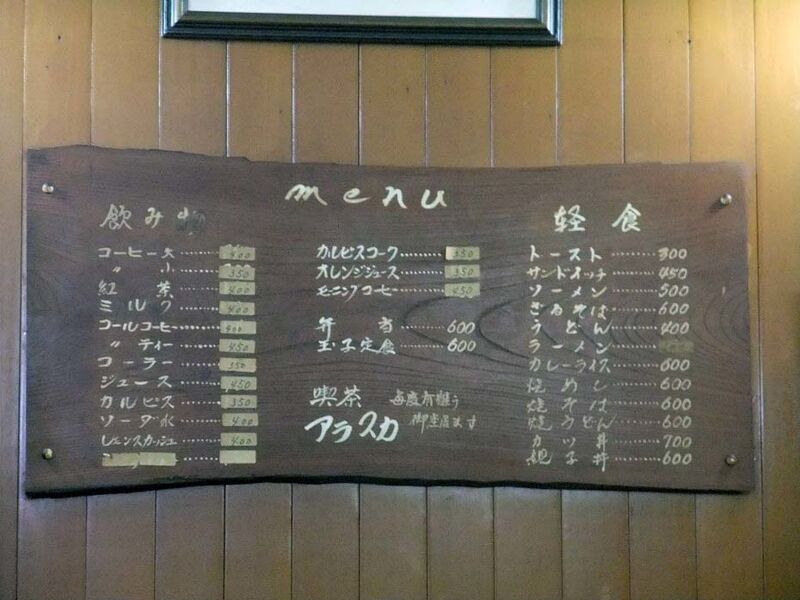 menu
飲み物
コーヒー大 ······ 400
〃 小 ······ 350
紅茶 ······ 400
ミルク ······ 400
コールコーヒー ······ 400
〃 ティー ······ 450
コーラー ······ 350
ジュース ······ 450
カルピス ······ 350
ソーダ水 ······ 400
レモンスカッシュ ······ 400
カルピスコーク ······ 350
オレンジジュース ······ 350
モーニングコーヒー ······ 450
弁当 ······ 600
玉子定食 ······ 600
喫茶
アラスカ
毎度有難う
御座居ます
軽食
トースト ······ 300
サンドイッチ ······ 450
ソーメン ······ 500
ざるそば ······ 600
うどん ······ 400
ラーメン ······
カレーライス ······ 600
焼めし ······ 600
焼そば ······ 600
焼うどん ······ 600
カツ丼 ······ 700
親子丼 ······ 600